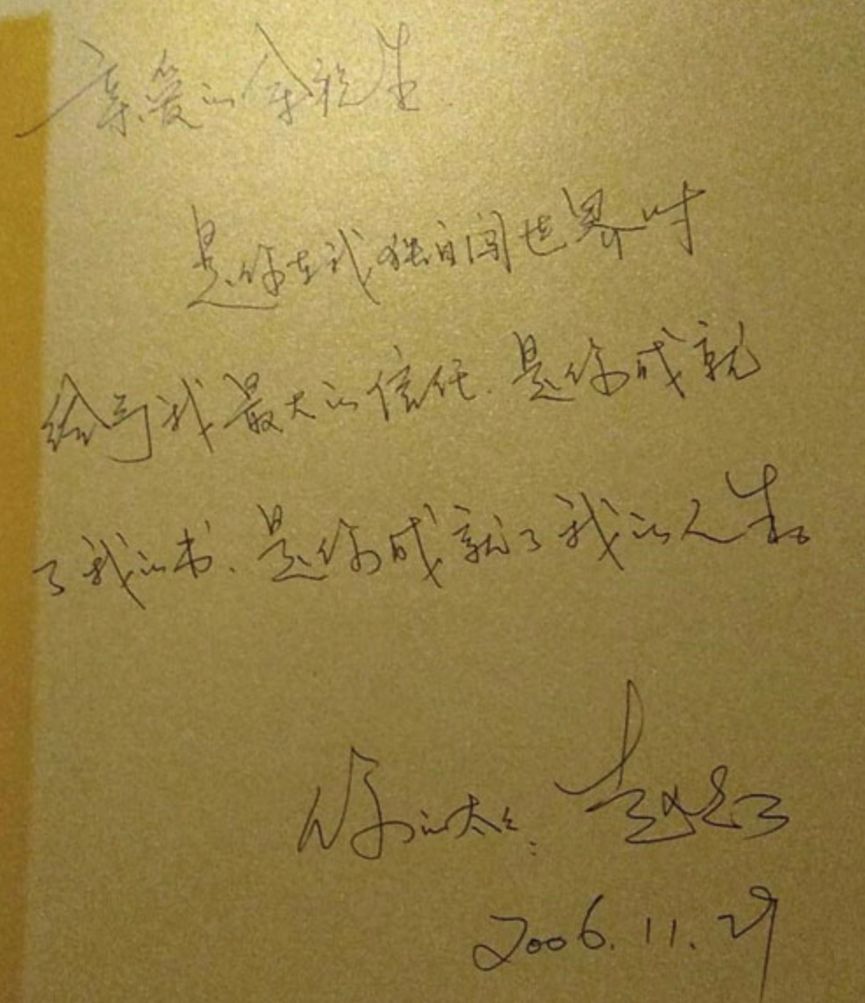 亲爱的余先生
是你在我独自闯世界时
给予我最大的信任.是你成就
了我的书.是你成就了我的人生。
你的太太:
2006.11.29